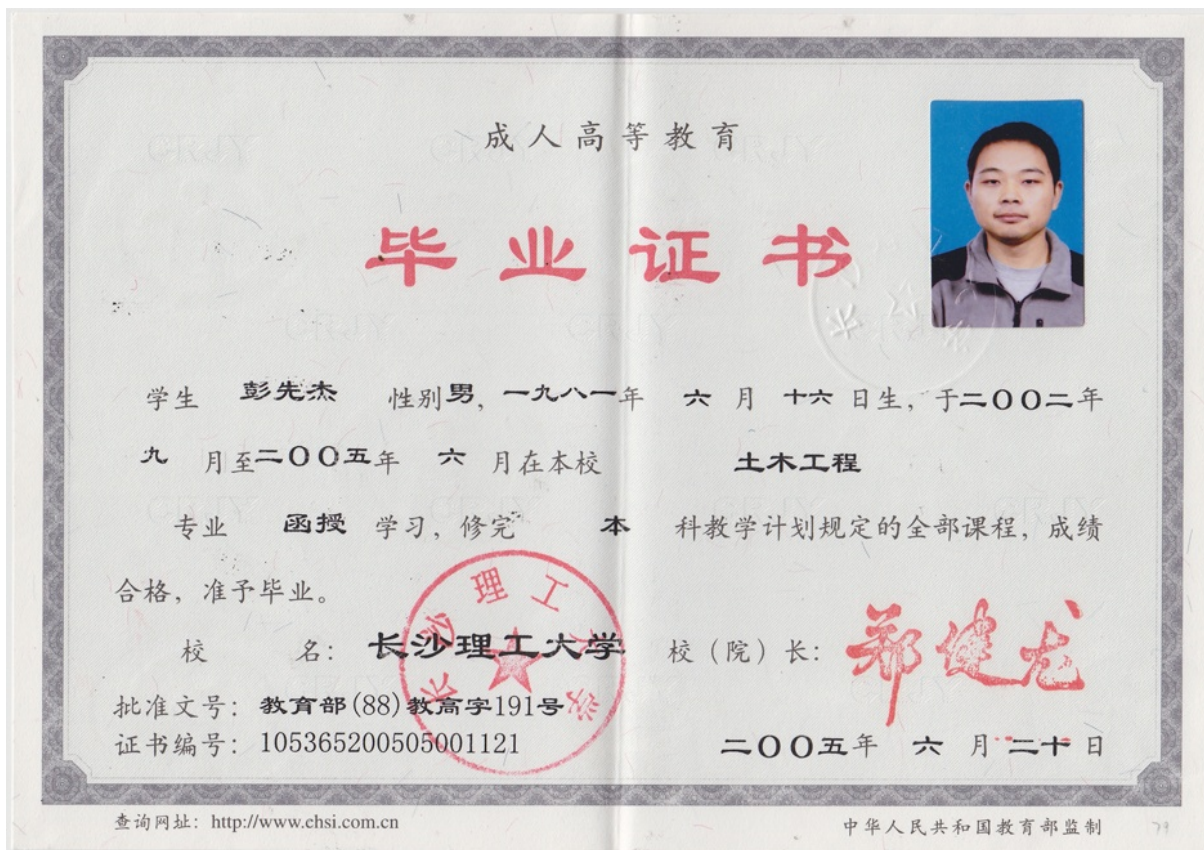 成人高等教育
毕业证书
学生 彭先杰 性别男，一九八一年 六 月 十六 日生，于二〇〇二年
九 月至二〇〇五年 六 月在本校 土木工程
专业 函授 学习，修完 本 科教学计划规定的全部课程，成绩
合格，准予毕业。
校 名：长沙理工大学 校（院）长：郑健龙
批准文号：教育部(88)教高字191号
证书编号：105365200505001121
二〇〇五年 六 月 二十 日
长沙理工大学
查询网址：http://www.chsi.com.cn
中华人民共和国教育部监制
79